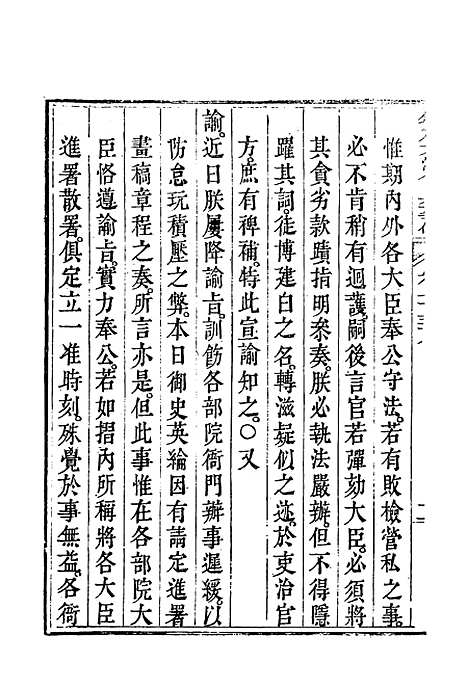 惟期內外各大臣奉公守法。若有敗檢營私之事。
必不肯稍有迴護。嗣後言官若彈劾大臣。必須將
其貪劣款蹟指明叅奏。朕必執法嚴辦。但不得隱
躍其詞。徒博建白之名。轉滋疑似之迹。於吏治官
方。庶有裨補。特此宣諭知之。○又
諭。近日朕屢降諭旨。訓飭各部院衙門辦事遲緩。以
防怠玩積壓之弊。本日御史英綸因有請定進署
畫稿章程之奏。所言亦是。但此事惟在各部院大
臣恪遵諭旨。實力奉公。若如摺內所稱將各大臣
進署散署。俱定立一准時刻。殊覺於事無益。各衙